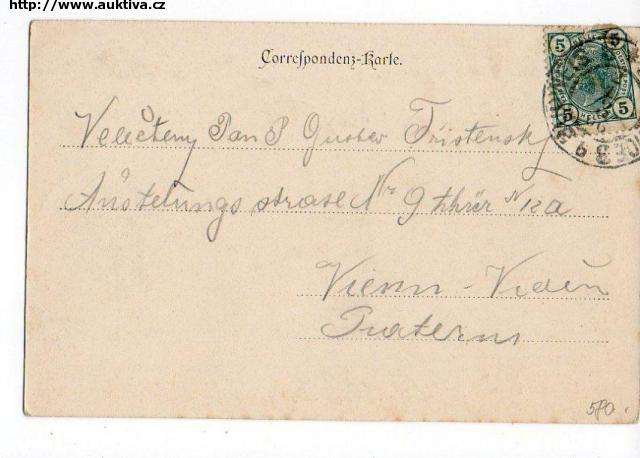 http://www.auktiva.cz
Correspondenz-Karte.
5 5
5 5
Velečteny Pan P Gustav Třistensky
Austelungs strase Nr 9 thür N 12 a
Vienn - Videň
Praterns
580.